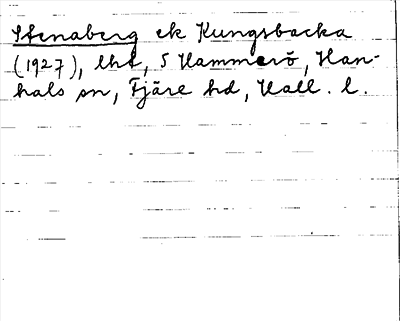 Stenaberg ek Kungsbacka
(1927), lht, S Hammerö, Han-
hals sn, Fjäre hd, Hall. l.